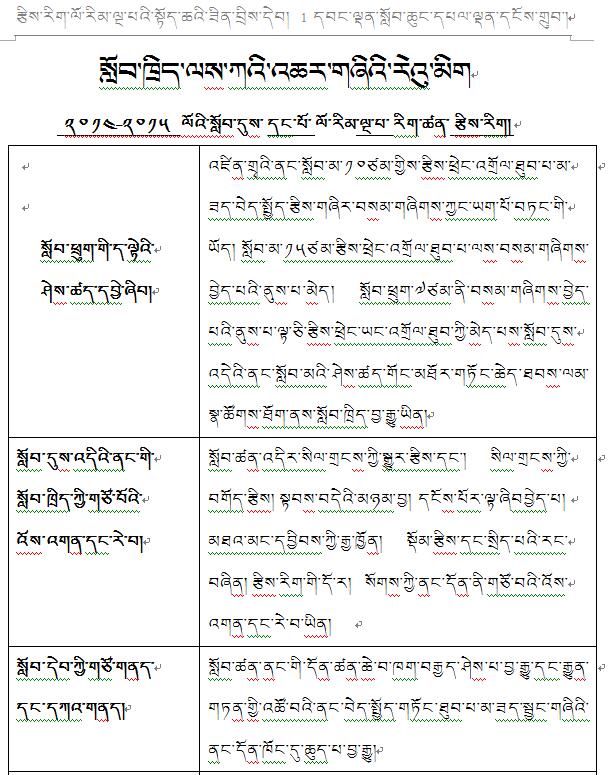 རྩིས་རིག་ལོ་རིམ་ལྔ་པའི་སྟོད་ཆའི་ཟིན་བྲིས་དེབ། 1 དབང་ལྡན་སློབ་ཆུང་དཔལ་ལྡན་དངོས་གྲུབ།
སློབ་ཁྲིད་ལས་ཀའི་འཆར་གཞིའི་རེའུ་མིག
༢༠༡༤–༢༠༡༥ ལོའི་སློབ་དུས་ དང་པོ་ ལོ་རིམ་ལྔ་བ་ རིག་ཚན་ རྩིས་རིག།
སློབ་ཕྲུག་གི་ད་ལྟེའི་
ཤེས་ཚད་དབྱེ་ཞིབ།
འཛིན་གྲྭའི་ནང་སློབ་མ་༡༠ཙམ་གྱིས་རྩིས་ཕྲེང་འགྲོལ་ཐུབ་པ་མ་
ཟད་བེད་སྤྱོད་རྩིས་གཞིར་བསམ་གཞིགས་ཀྱང་ཡག་པོ་བཏང་གི་
ཡོད། སློབ་མ་༡༥ཙམ་རྩིས་ཕྲེང་འགྲོལ་ཐུབ་པ་ལས་བསམ་གཞིགས་
བྱེད་པའི་ནུས་པ་མེད། སློབ་ཕྲུག་༧ཙམ་ནི་བསམ་གཞིགས་བྱེད་
པའི་ནུས་པ་ལྟ་ཅི་རྩིས་ཕྲེང་ཡང་འགྲོལ་ཐུབ་ཀྱི་མེད་པས་སློབ་དུས་
འདིའི་ནང་སློབ་མའི་ཤེས་ཚད་གོང་མཐོར་གཏོང་ཆེད་ཐབས་ལམ་
སྣ་ཚོགས་ཐོག་ནས་སློབ་ཁྲིད་བྱ་རྒྱུ་ཡིན།
སློབ་དུས་འདིའི་ནང་གི་
སློབ་ཁྲིད་ཀྱི་གཙོ་བོའི་
འོས་འགན་དང་རེ་བ།
སློབ་ཚན་འདིར་སིལ་གྲངས་ཀྱི་སྒྱུར་རྩིས་དང་། སིལ་གྲངས་ཀྱི་
བགོད་རྩིས། སྟབས་བདེའི་མཉམ་བྱ། དངོས་པོར་ལྟ་ཞིབ་བྱེད་པ།
མཐའ་མང་དབྱིབས་ཀྱི་རྒྱ་ཁྱོན། སྡོམ་རྩིས་དང་སྲིད་པའི་རང་
བཞིན། རྩིས་རིག་གི་དོ་ར། སོགས་ཀྱི་ནང་དོན་ནི་གཙོ་བའི་འོས་
འགན་དང་རེ་བ་ཡིན།
སློབ་དེབ་ཀྱི་གཙོ་གནད་
དང་དཀའ་གནད།
སློབ་ཚན་ནང་གི་དོན་ཚན་ཆེ་བ་ཁག་བརྒྱད་ཤེས་པ་བྱ་རྒྱུ་དང་རྒྱུན་
གཏན་གྱི་འཚོ་བའི་ནང་བེད་སྤྱོད་གཏོང་ཐུབ་པ་མ་ཟད་སྦྱང་གཞིའི་
ནང་དོན་ཁོང་དུ་ཆུད་པ་བྱ་རྒྱུ།